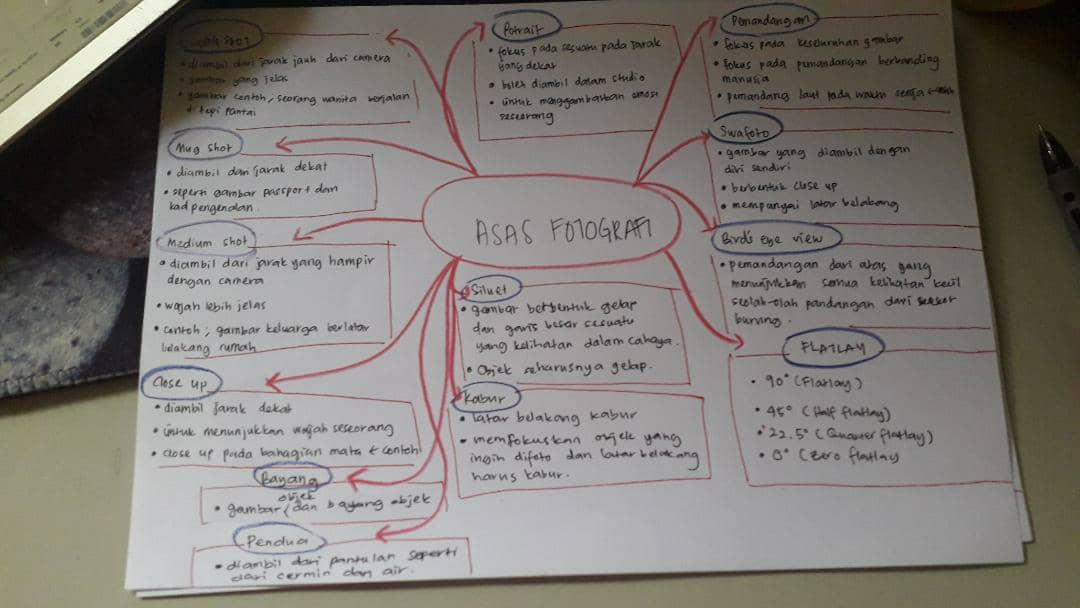 ASAS FOTOGRAFI
Long shot
• diambil dari jarak jauh dari camera
• gambar yang jelas
• gambar contoh, seorang wanita berjalan
tepi pantai
Mug shot
• diambil dari jarak dekat
• seperti gambar passport dan
kad pengenalan.
Medium shot
• diambil dari jarak yang hampir
dengan camera
• wajah lebih jelas
• contoh; gambar keluarga berlatar
belakang rumah
Close up
• diambil jarak dekat
• untuk menunjukkan wajah seseorang
• close up pada bahagian mata contoh
Bayang
objek
• gambar (dan bayang objek
Pendua
• diambil dari pantulan seperti
dari cermin dan air.
Potrait
• fokus pada sesuatu pada jarak
yang dekat
• boleh diambil dalam studio
• untuk menggambarkan emosi
seseorang
Siluet
• gambar berbentuk gelap
dan garis besar sesuatu
yang kelihatan dalam cahaya.
• Objek seharusnya gelap.
Kabur
• latar belakang kabur
• memfokuskan objek yang
ingin difoto dan latar belakang
harus kabur.
Pemandangan
• fokus pada keseluruhan gambar
• fokus pada pemandangan berbanding
manusia
• pemandang laut pada waktu senja
Swafoto
• gambar yang diambil dengan
diri sendiri
• berbentuk close up
• mempunyai latar belakang
Bird's eye view
• pemandangan dari atas yang
menunjukkan semua kelihatan kecil
seolah-olah pandangan dari seekor
burung.
FLATLAY
• 90° (Flatlay)
• 45° (Half flatlay)
• 22.5° (Quarter flatlay)
• 0° (Zero flatlay